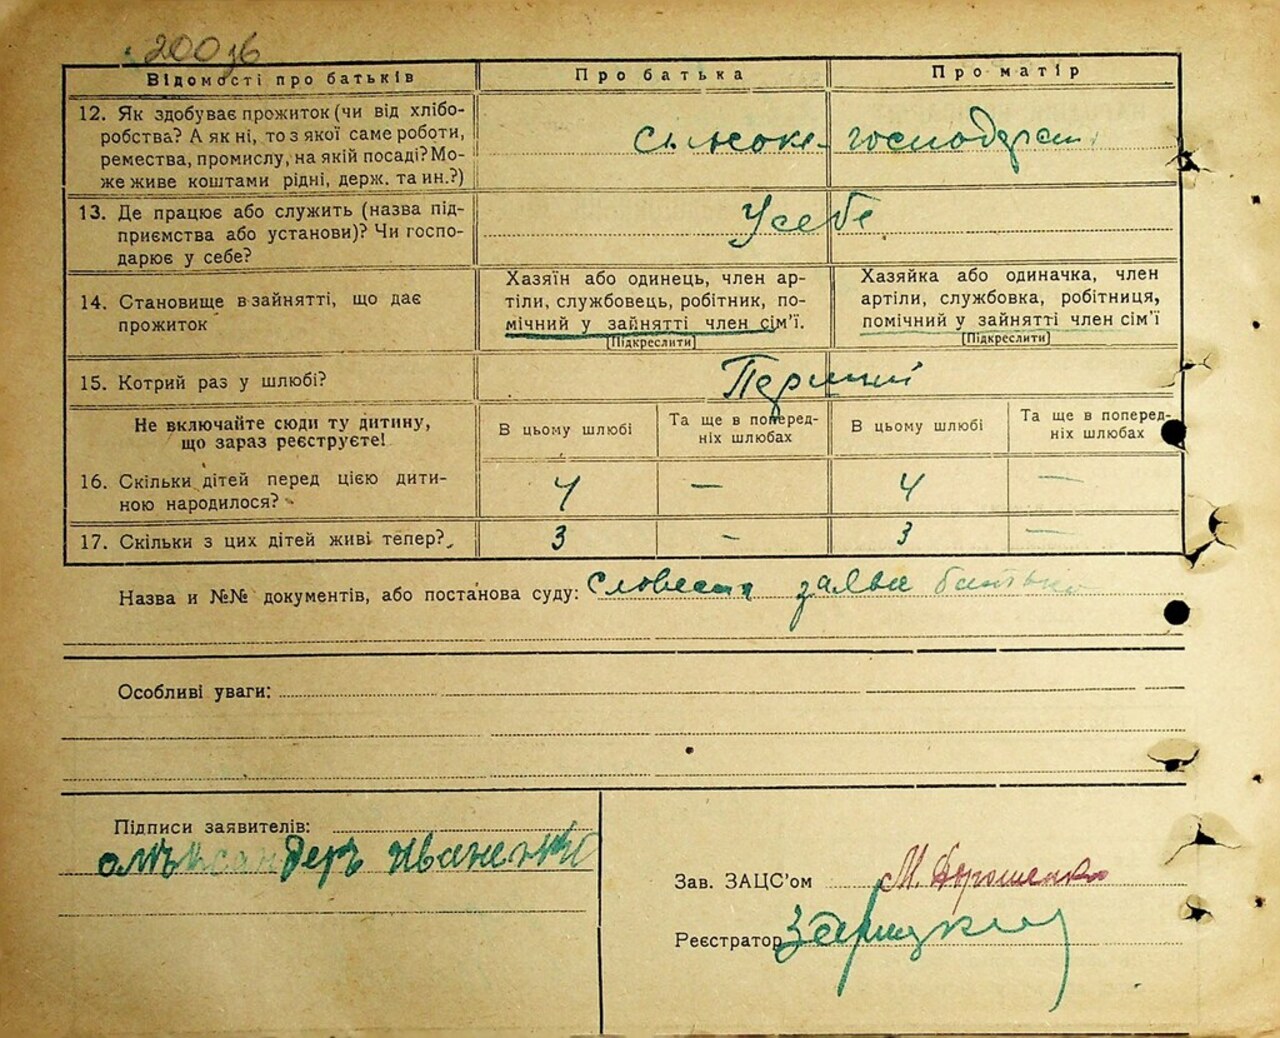 200
Відомості про батьків
Про батька
Про матір
12. Як здобуває прожиток (чи від хлібо-
робства? А як ні, то з якої саме роботи,
ремества, промислу, на якій посаді? Мо-
же живе коштами рідні, держ. та ин.?)
13. Де працює або служить (назва під-
приємства або установи)? Чи госпо-
дарює у себе?
У себе
14. Становище в зайнятті, що дає
прожиток
Хазяїн або одинець, член ар-
тіли, службовець, робітник, по-
мічний у зайнятті член сім'ї.
(Підкреслити)
Хазяйка або одиначка, член
артіли, службовка, робітниця,
помічний у зайнятті член сім'ї
(Підкреслити)
15. Котрий раз у шлюбі?
Перший
Не включайте сюди ту дитину,
що зараз реєструєте!
В цьому шлюбі
Та ще в поперед-
ніх шлюбах
В цьому шлюбі
Та ще в поперед-
ніх шлюбах
16. Скільки дітей перед цією дити-
ною народилося?
4 — 4 —
17. Скільки з цих дітей живі тепер?
3 — 3 —
Назва и №№ документів, або постанова суду: словесна заява батька
Особливі уваги:
Підписи заявителів:
Иваненко
Зав. ЗАЦС'ом М. Дорошенко
Реєстратор